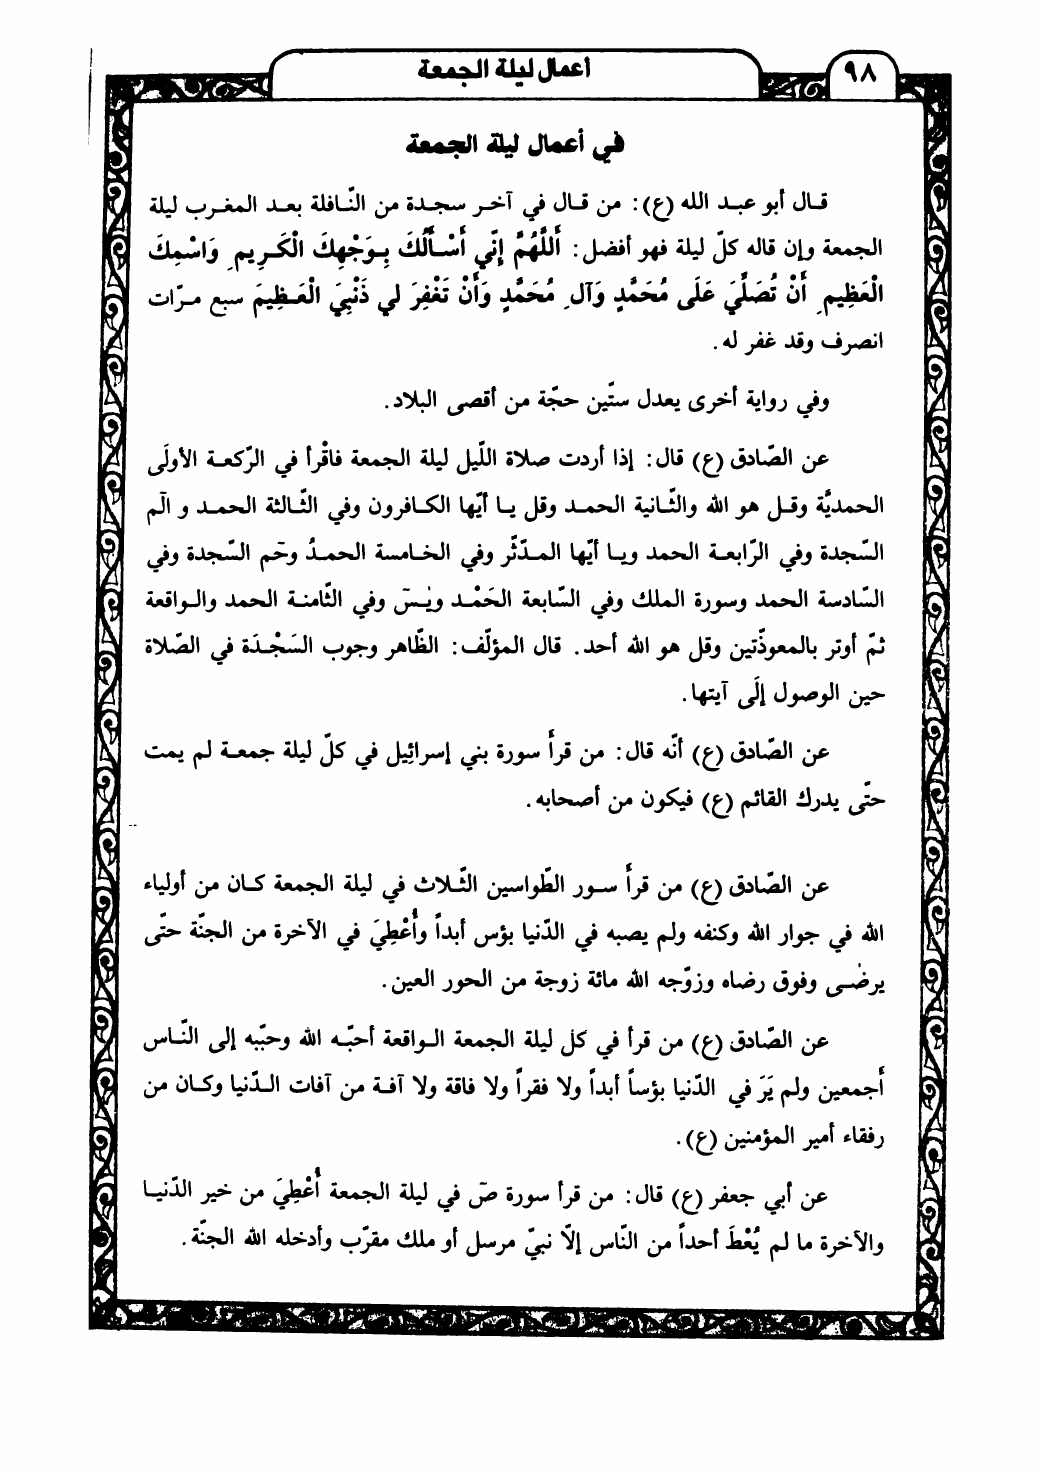 ٩٨
أعمال ليلة الجمعة
في أعمال ليلة الجمعة
قال أبو عبد الله (ع): من قال في آخر سجدة من النّافلة بعد المغرب ليلة
الجمعة وإن قاله كلّ ليلة فهو أفضل: أَللَّهُمَّ إِنِّي أَسْأَلُكَ بِوَجْهِكَ الْكَرِيمِ وَاسْمِكَ
الْعَظِيمِ أَنْ تُصَلِّيَ عَلَى مُحَمَّدٍ وَآلِ مُحَمَّدٍ وَأَنْ تَغْفِرَ لي ذَنْبِيَ الْعَظِيمَ سبع مرّات
انصرف وقد غفر له.
وفي رواية أخرى يعدل ستّين حجّة من أقصى البلاد.
عن الصّادق (ع) قال: إذا أردت صلاة اللّيل ليلة الجمعة فاقْرأ في الرّكعة الأولَى
الحمديَّة وقل هو الله والثّانية الحمد وقل يا أيّها الكافرون وفي الثّالثة الحمد و الٓم
السّجدة وفي الرّابعة الحمد ويا أيّها المدّثّر وفي الخامسة الحمدُ وحٓم السّجدة وفي
السّادسة الحمد وسورة الملك وفي السّابعة الحَمْد ويٰسٓ وفي الثّامنة الحمد والواقعة
ثمّ أوتر بالمعوذّتين وقل هو الله أحد. قال المؤلّف: الظّاهر وجوب السَجْدَة في الصّلاة
حين الوصول إلَى آيتها.
عن الصّادق (ع) أنّه قال: من قرأ سورة بني إسرائيل في كلّ ليلة جمعة لم يمت
حتّى يدرك القائم (ع) فيكون من أصحابه.
عن الصّادق (ع) من قرأ سور الطّواسين الثّلاث في ليلة الجمعة كان من أولياء
الله في جوار الله وكنفه ولم يصبه في الدّنيا بؤس أبداً وأُعْطِيَ في الآخرة من الجنّة حتّى
يرضى وفوق رضاه وزوّجه الله مائة زوجة من الحور العين.
عن الصّادق (ع) من قرأ في كل ليلة الجمعة الواقعة أحبّه الله وحبّبه إلى النّاس
أجمعين ولم يَرَ في الدّنيا بؤساً أبداً ولا فقراً ولا فاقة ولا آفة من آفات الدّنيا وكان من
رفقاء أمير المؤمنين (ع).
عن أبي جعفر (ع) قال: من قرأ سورة صٓ في ليلة الجمعة أُعْطِيَ من خير الدّنيا
والآخرة ما لم يُعْطَ أحداً من النّاس إلّا نبيّ مرسل أو ملك مقرّب وأدخله الله الجنّة.